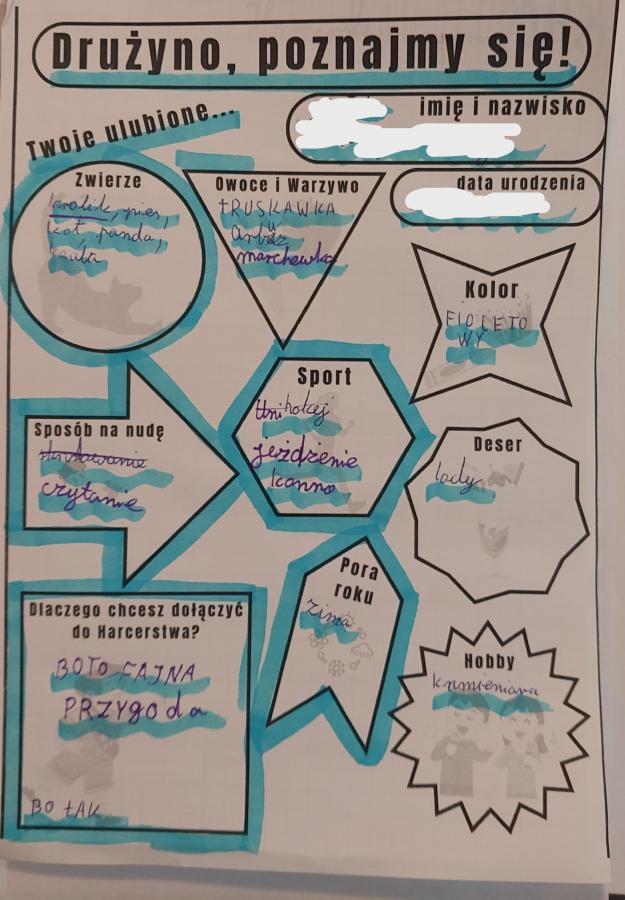 Drużyno, poznajmy się!
imię i nazwisko
Twoje ulubione...
data urodzenia
Zwierze
krolik, pies,
kot, panda,
Owoce i Warzywo
tRUSKAWKA
arbuz
marchewka
Kolor
FIOLETO
WY
Sposób na nudę
czytanie
Sport
Unihokej
jeżdzenie
konno
Deser
lody
Pora
roku
zima
Dlaczego chcesz dołączyć
do Harcerstwa?
BOTO FAJNA
PRZYGoda
BO tAK
Hobby